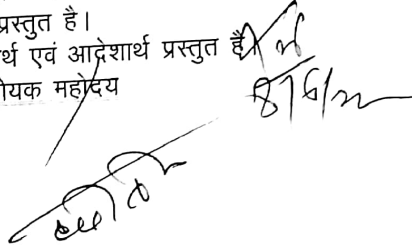 प्रस्तुत है।
र्थ एवं आदेशार्थ प्रस्तुत है
ायक महोदय
8/6/22